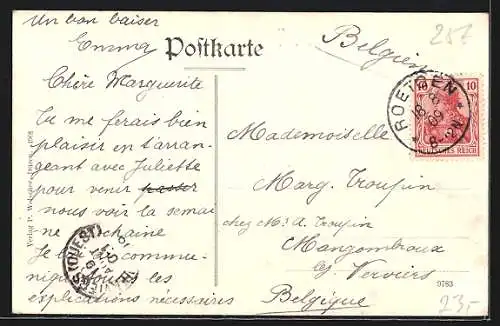 Un bon baiser
Emma
Postkarte
Belgien
257
Chère Marguerite
Tu me ferais bien
plaisir en t'arran-
geant avec Juliette
pour venir passer
nous voir la semai
ne prochaine
Je te commu-
nique toutes les
explications nécessaires
Mademoiselle
Marg. Troupin
chez Mr A. Troupin
Mangombroux
lez Verviers
Belgique
ROETGEN
18 8 09
8-9N
10 10
DEUTSCHES REICH
(OUEST)
9783
23.-